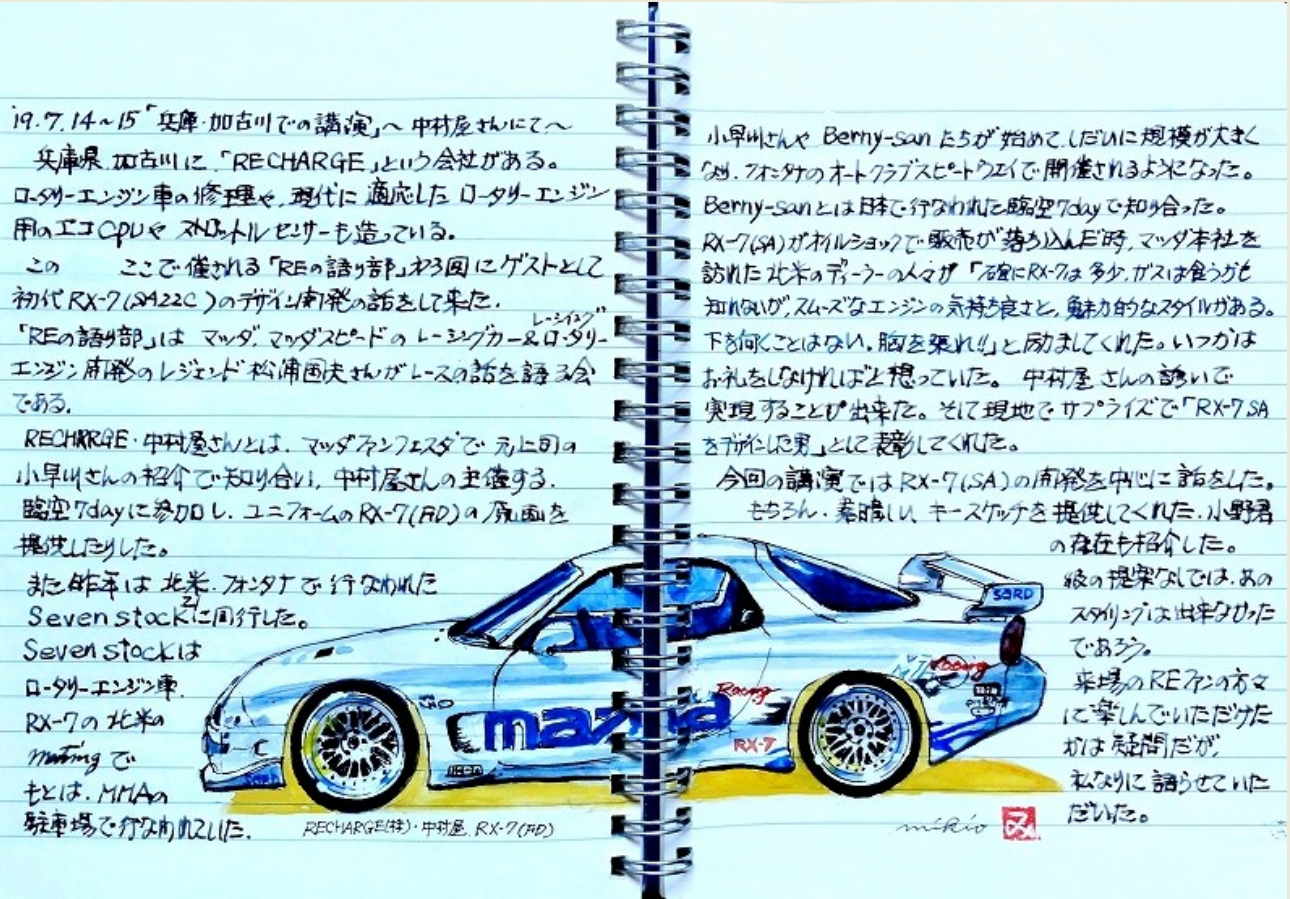 '19.7.14～15「兵庫・加古川での講演」～中村屋さんにて～
兵庫県.加古川に、「RECHARGE」という会社がある。
ロータリーエンジン車の修理や、現代に適応したロータリーエンジン
用のエコCPUやスロットルセンサーも造っている。
この ここで催される「REの語り部」オ3回にゲストとして
初代RX-7(SA22C)のデザイン開発の話をして来た.
「REの語り部」は マツダ.マツダスピードの レーシングカー&ロータリー
レーシイング
エンジン開発のレジェンド松浦国夫さんがレースの話を語る会
である.
RECHARGE・中村屋さんとは、マツダファンフェスタで 元上司の
小早川さんの紹介で知り合い、中村屋さんの主催する.
臨空7dayに参加し、ユニフォームのRX-7(FD)の原画を
提供したりした。
また昨年は 北米.フォンタナで行なわれた
Sevenstock21に同行した。
Sevenstockは
ロータリーエンジン車.
RX-7の北米の
meetingで
もとは.MMAの
駐車場で行なわれていた.
小早川さんや Berny-sanたちが始めて、しだいに規模が大きく
なり.フォンタナのオートクラブスピートウエイで開催されるようになった。
Berny-sanとは日本で行なわれた臨空7dayで知り合った。
RX-7(SA)がオイルショックで販売が落ち込んだ時、マツダ本社を
訪れた北米のディーラーの人々が「確にRX-7は多少.ガスは食うかも
知れないが、スムーズなエンジンの気持ち良さと、魅力的なスタイルがある。
下を向くことはない.胸を張れ!!」と励ましてくれた。いつかは
お礼をしなければと想っていた。 中村屋さんの誘いで
実現することが出来た。そして現地でサプライズで「RX-7 SA
をデザインした男」として表彰してくれた。
今回の講演ではRX-7(SA)の開発を中心に話をした。
もちろん.素晴しい キースケッチを提供してくれた.小野君
の存在も紹介した。
彼の提案なしでは、あの
スタイリングは出来なかった
であろう。
来場のREファンの方々
に楽しんでいただけた
かは疑問だが、
私なりに語らせていた
だいた。
SARD
Racing
Racing
mazda
RX-7
RECHARGE(株)・中村屋. RX-7(FD)
mikio
み